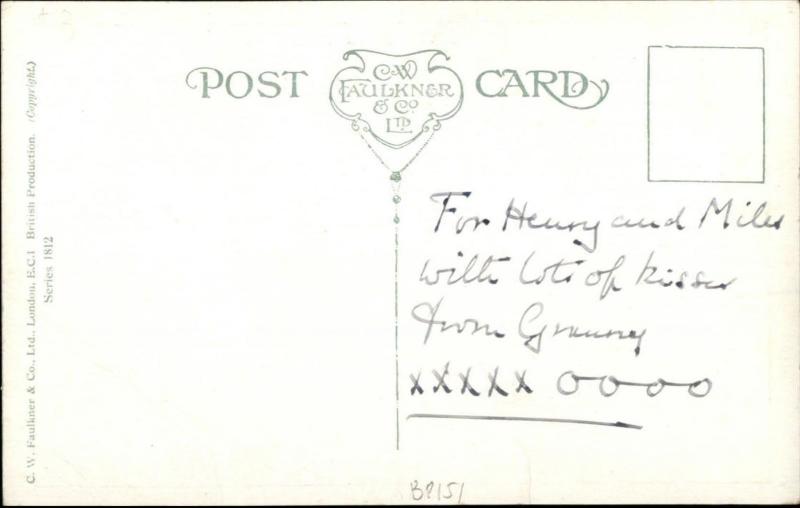 POST CARD
C.W
FAULKNER
& Co
LTD.
C. W. Faulkner & Co., Ltd., London, E.C.1 British Production. (Copyright.)
Series 1812
For Henry and Miles
with lots of kisses
from Granny
xxxxx oooo